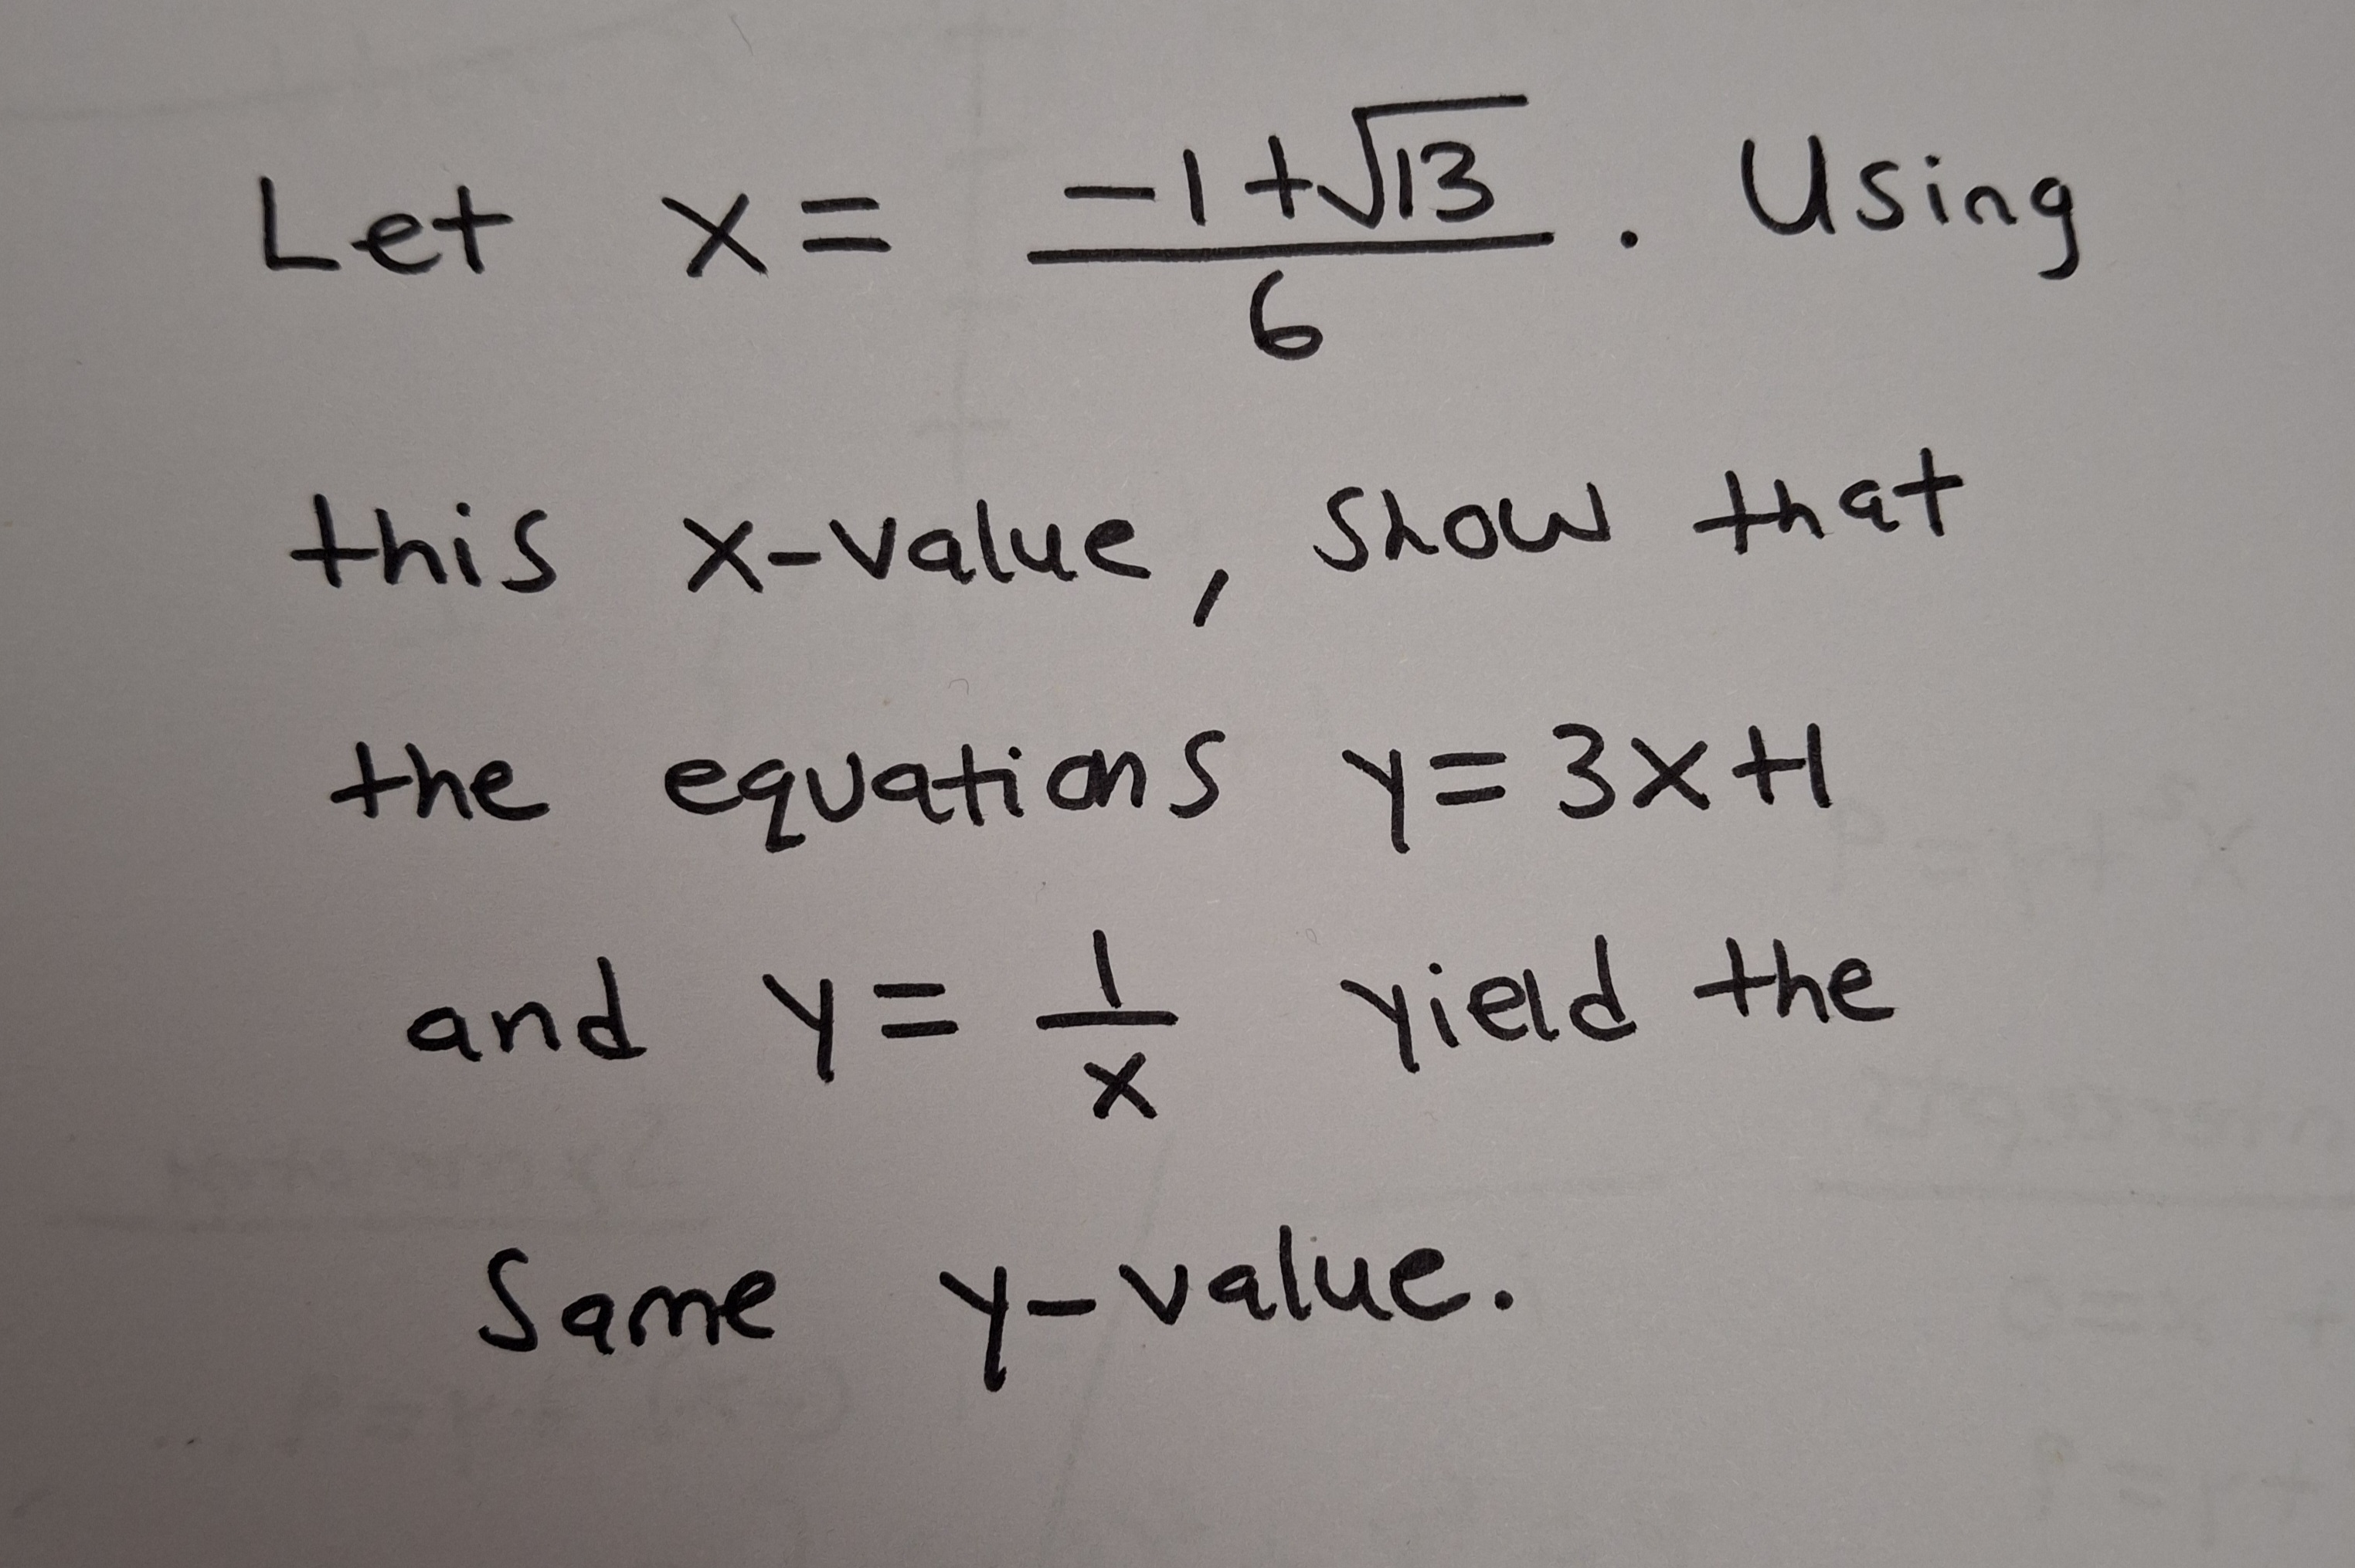 Let x = (-1+√13)/6. Using
this x-value, show that
the equations y = 3x+1
and y = 1/x yield the
same y-value.